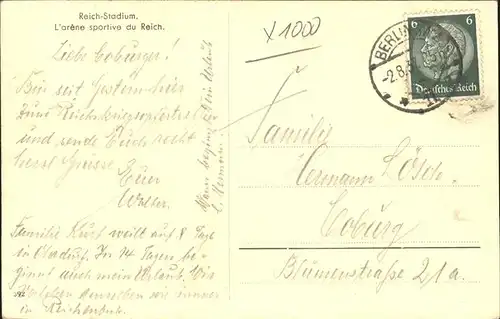 Reich-Stadium.
L'arène sportive du Reich.
Liebe Coburger!
Bin seit gestern hier
zum Reichskriegsopfertreffen
und sende Euch recht
herzl. Grüsse.
Euer
Walter.
Familie Kurt weilt auf 8 Tage
in Ohrdruf. In 14 Tagen be-
ginnt auch mein Urlaub. Wir
verleben denselben wie immer
in
Wann beginnt Dein Urlaub
x 1000
BERLIN
-2.8.
6 6
Deutsches Reich
Familie
Hermann Lösch.
Coburg
Blumenstraße 21a.